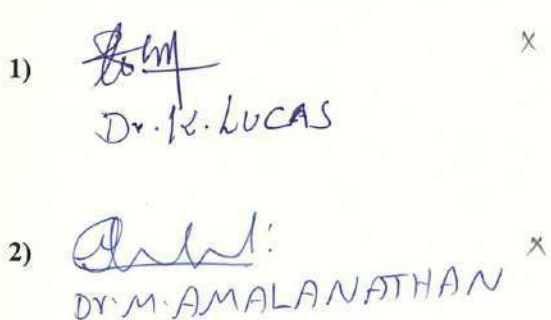 1)
x
Dr. K. LUCAS
2)
x
Dr. M. AMALANATHAN